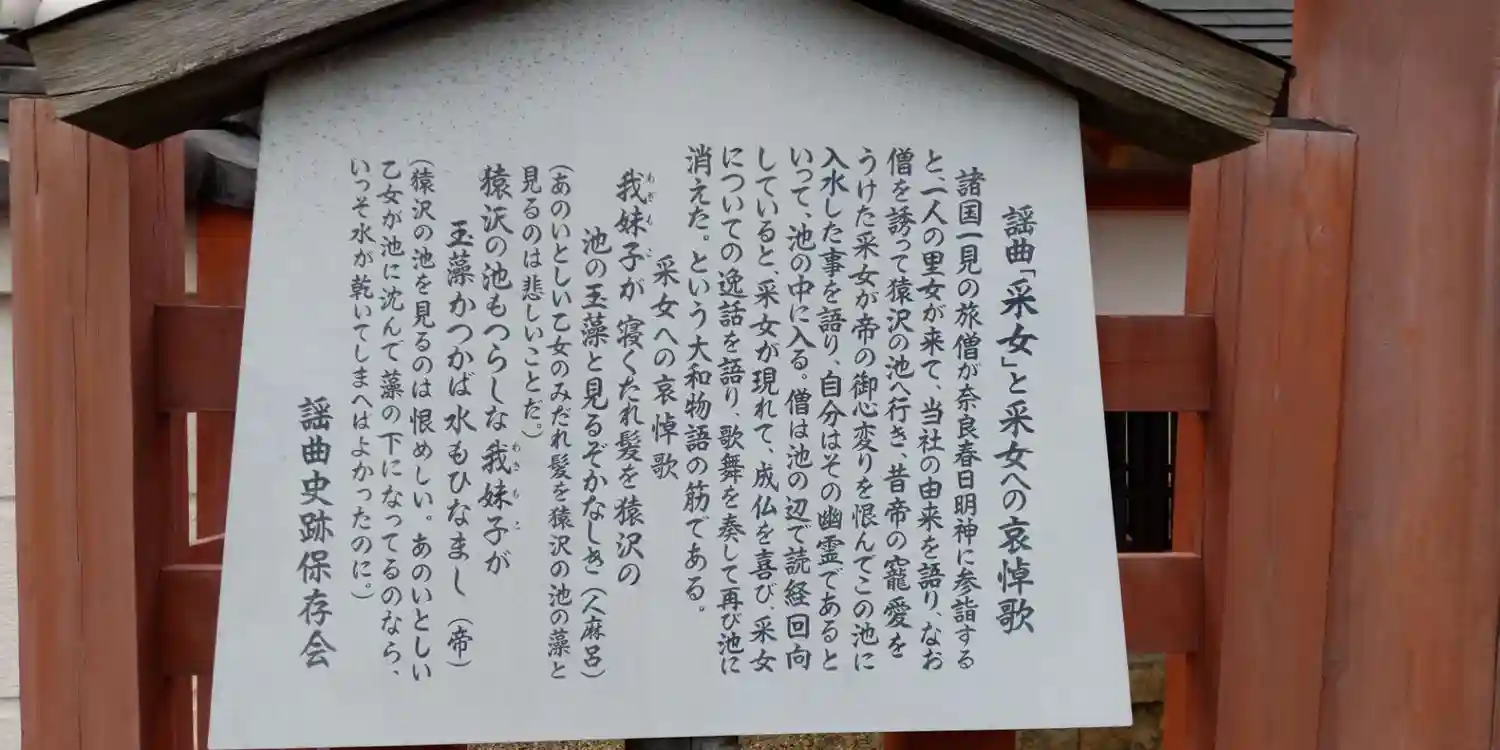 謡曲「采女」と采女への哀悼歌
諸国一見の旅僧が奈良春日明神に参詣する
と、一人の里女が来て、当社の由来を語り、なお
僧を誘って猿沢の池へ行き、昔帝の寵愛を
うけた采女が帝の御心変りを恨んでこの池に
入水した事を語り、自分はその幽霊であると
いって、池の中に入る。僧は池の辺で読経回向
していると、采女が現れて、成仏を喜び、采女
についての逸話を語り、歌舞を奏して再び池に
消えた。という大和物語の筋である。
采女への哀悼歌
我妹子が寝くたれ髪を猿沢の
池の玉藻と見るぞかなしき(人麻呂)
(あのいとしい乙女のみだれ髪を猿沢の池の藻と
見るのは悲しいことだ。)
猿沢の池もつらしな我妹子が
玉藻かつかば水もひなまし(帝)
(猿沢の池を見るのは恨めしい。あのいとしい
乙女が池に沈んで藻の下になってるのなら、
いっそ水が乾いてしまへばよかったのに。)
謡曲史跡保存会